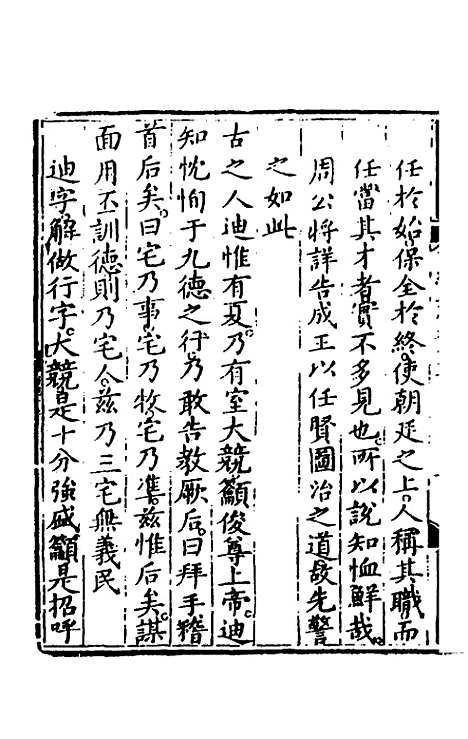 任於始保全於終使朝廷之上人稱其職而
任當其才者實不多見也所以說知恤鮮哉
周公將詳告成王以任賢圖治之道故先警
之如此
古之人迪惟有夏乃有室大競籲俊尊上帝迪
知忱恂于九德之行乃敢告教厥后曰拜手稽
首后矣曰宅乃事宅乃牧宅乃準茲惟后矣謀
面用丕訓德則乃宅人茲乃三宅無義民
迪字解做行字大競是十分強盛籲是招呼